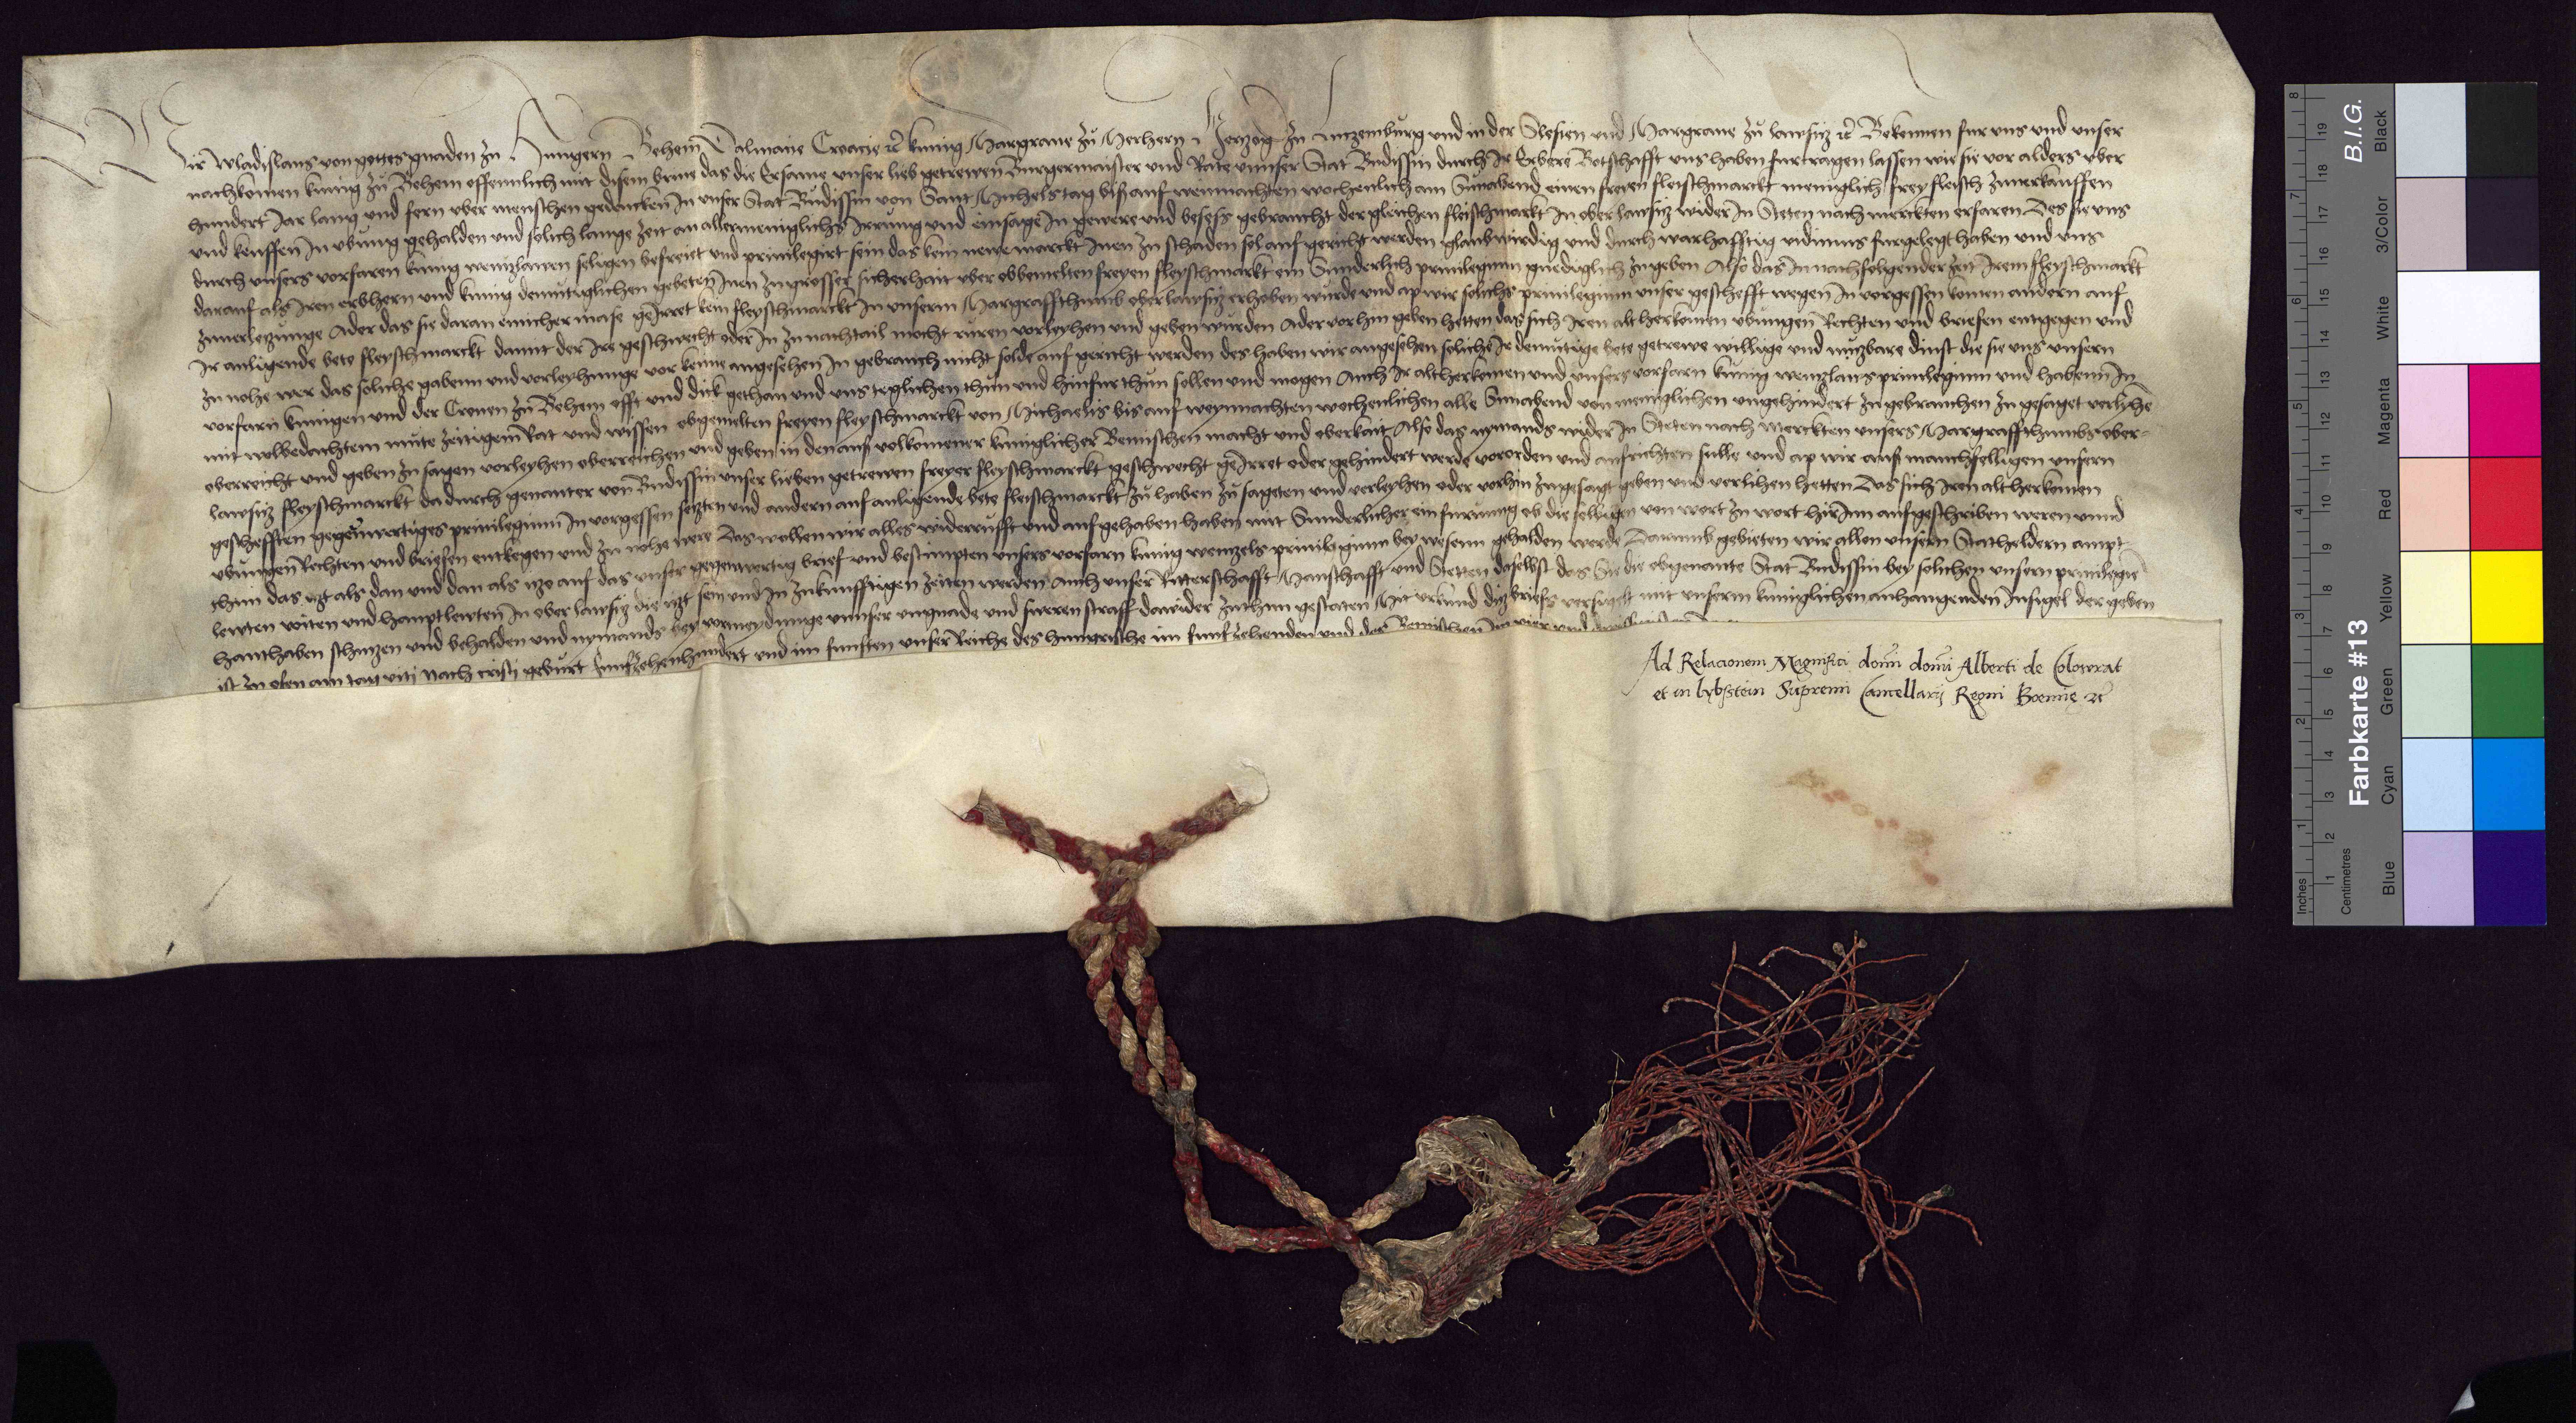 Wir Wladislaus von gottes gnaden zu Hungern Behem Dalmacie Croacie ꝛc kunig Marggraue zu Merhern Hertzog zu Luczemburg und in der Slesien und Marggraue zu lawsitz ꝛc Bekennen fur uns und unser
nachkomen kunig zu Behem offennlich mit disem briue das die Ersame unser lieb getrewen Burgermaister und Rate unnser Stat Budissin durch Ir Erbere Botschafft uns haben furtragen lassen wie sie vor alders uber
hundert Jar lang und fern uber menschen gedencken In unser Stat Budissin von Sant Michels tag bis auf weinnachten wochenlich am Sunabend einen freyen fleischmarckt meniglich frey fleisch zuuerkauffen
und keuffen In ubung gehalden und solich lange zeit an allermeniglichs Irrung und einsage In gewere und besess gebraucht der gleichen fleischmarkt In ober lawsitz wider In Steten nach merckten erfaren Des sie uns
durch unsers vorfaren kunig wenczlawen seligen befreiet und priuilegirt sein das kein newe marckt Inen zu schaden sol auf gericht werden glaubwirdig und durch warhafftig vidimus furgelegt haben und uns
darauf als Iren erbhern und kunig demutiglichen gebeten Inen zu grosser sicherhait uber obbemelten freyen fleyschmarkt ein Sunderlich priuilegium gnediglich zu geben Also das In nachfolgender zeit Irem fleyschmarkt
zuuerletzunge Ader das sie daran einicher mase geIrret kein fleyschmarckt In unserm Marggraffthumb ober lawsitz erhoben wurde und ap wir solichs priuilegium unser geschefft wegen In vorgessen komen andern auf
Ir anligende bete fleyschmarckt damit der Ire geschwecht oder In zu nachtail mocht ruren vorleyhen und geben wurden Ader vorhin geben hetten das sich Iren alt herkomen ubungen Rechten und briefen entgegen und
zu nohe wer das soliche gabenn und vorleyhunge vor keine angesehen In gebrauch nicht solde auf gericht werden des haben wir angesehen soliche Ir demutige bete getrewe willige und nuczbare dinst die sie uns unsern
vorfarn kunigen und der Cronen zu Behem offt und dick gethan und uns teglichen thun und hinfur thun sollen und mogen Auch Ir alt herkomen und unsers vorfarn kunig wenzlaus priuilegium und habenn In
mit wolbedachtem mute zeitigem Rat und wissen obgemelten freyen fleyschmarckt von Michaelis bis auf weynnachten wochenlichen alle Sunabend von meniglichen ungehindert zu gebrauchen zu gesaget verlyhe
oberreicht und geben zu sagen vorleyhen oberreichen und geben in den auß volkomener kuniglicher Bemischen macht und oberkait Also das nymands wider In Steten nach merckten unsers Marggraffthumbs ober-
lawsitz fleyschmarckt dadurch genanter von Budissin unser lieben getrewen freyer fleyschmarckt geschwecht geIrret oder gehindert werde vororden und aufrichten sulle und ap wir auß manchfelligen unsern
geschefften gegenwertiges priuilegium In vorgessen setzten und andern auf anligende bete fleischmarckt zu haben zu sageten und verleyhen oder vorhin zugesagt geben und verlihen hetten Das sich Iren alt herkomen
ubungen Rechten und briefen entkegen und zu nohe were Das wollen wir alles widerrufft und aufgehaben haben mit Sunderlicher ein furunng ob die selbigen von wort zu wort hirInn aufgeschriben weren unnd
thun das itzt als dan und dan als itzo auf das unser gegenwertig brief und bestimpten unsers vorfarn kunig wenczels priuilegium bey wesenn gehalden werde Darumb gebieten wir allen unsern Stathaldern ampt
lewten voiten und hauptlewten In ober lawsitz die itzt sein und In zukunfftigen zeiten werden Auch unser Ritterschafft Manschafft und Stetten daselbst das Sie die obgenante Stat Budissin bey solichen unsern priuilegie
hanthaben schutzen und behalden und nymands bey vormeydunge unnser ungnade und swerren straff dawider zuthun gestaten Mit urkund ditz briefs versigelt mit unserm kuniglichen anhangenden Insigel der geben
ist zu ofen am tag viti Nach cristi geburt funfzehenhundert und im funften unser Reiche des hungrische im funfzehenden und des Bemischen Im vier und
Ad Relacionem Magnifici domi domi Alberti de Colowrat
et in lybsstein Supremi Cancellarij Regni Boemie ꝛc
Inches
Centimetres
1 2 3 4 5 6 7 8
1 2 3 4 5 6 7 8 9 10 11 12 13 14 15 16 17 18 19
Farbkarte #13
B.I.G.
Blue
Cyan
Green
Yellow
Red
Magenta
White
3/Color
Black